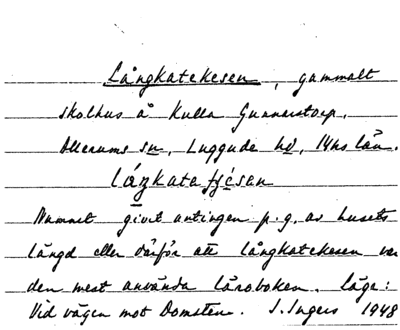 Långkatekesen, gammalt
skolhus å Kulla Gunnarstorp,
Allerums sn, Luggude hd, Mhs län.
Namnet givet antingen p.g. av husets
längd eller därför att långkatekesen var
den mest använda läroboken. Läge:
Vid vägen mot Domsten. I. Ingers 1948